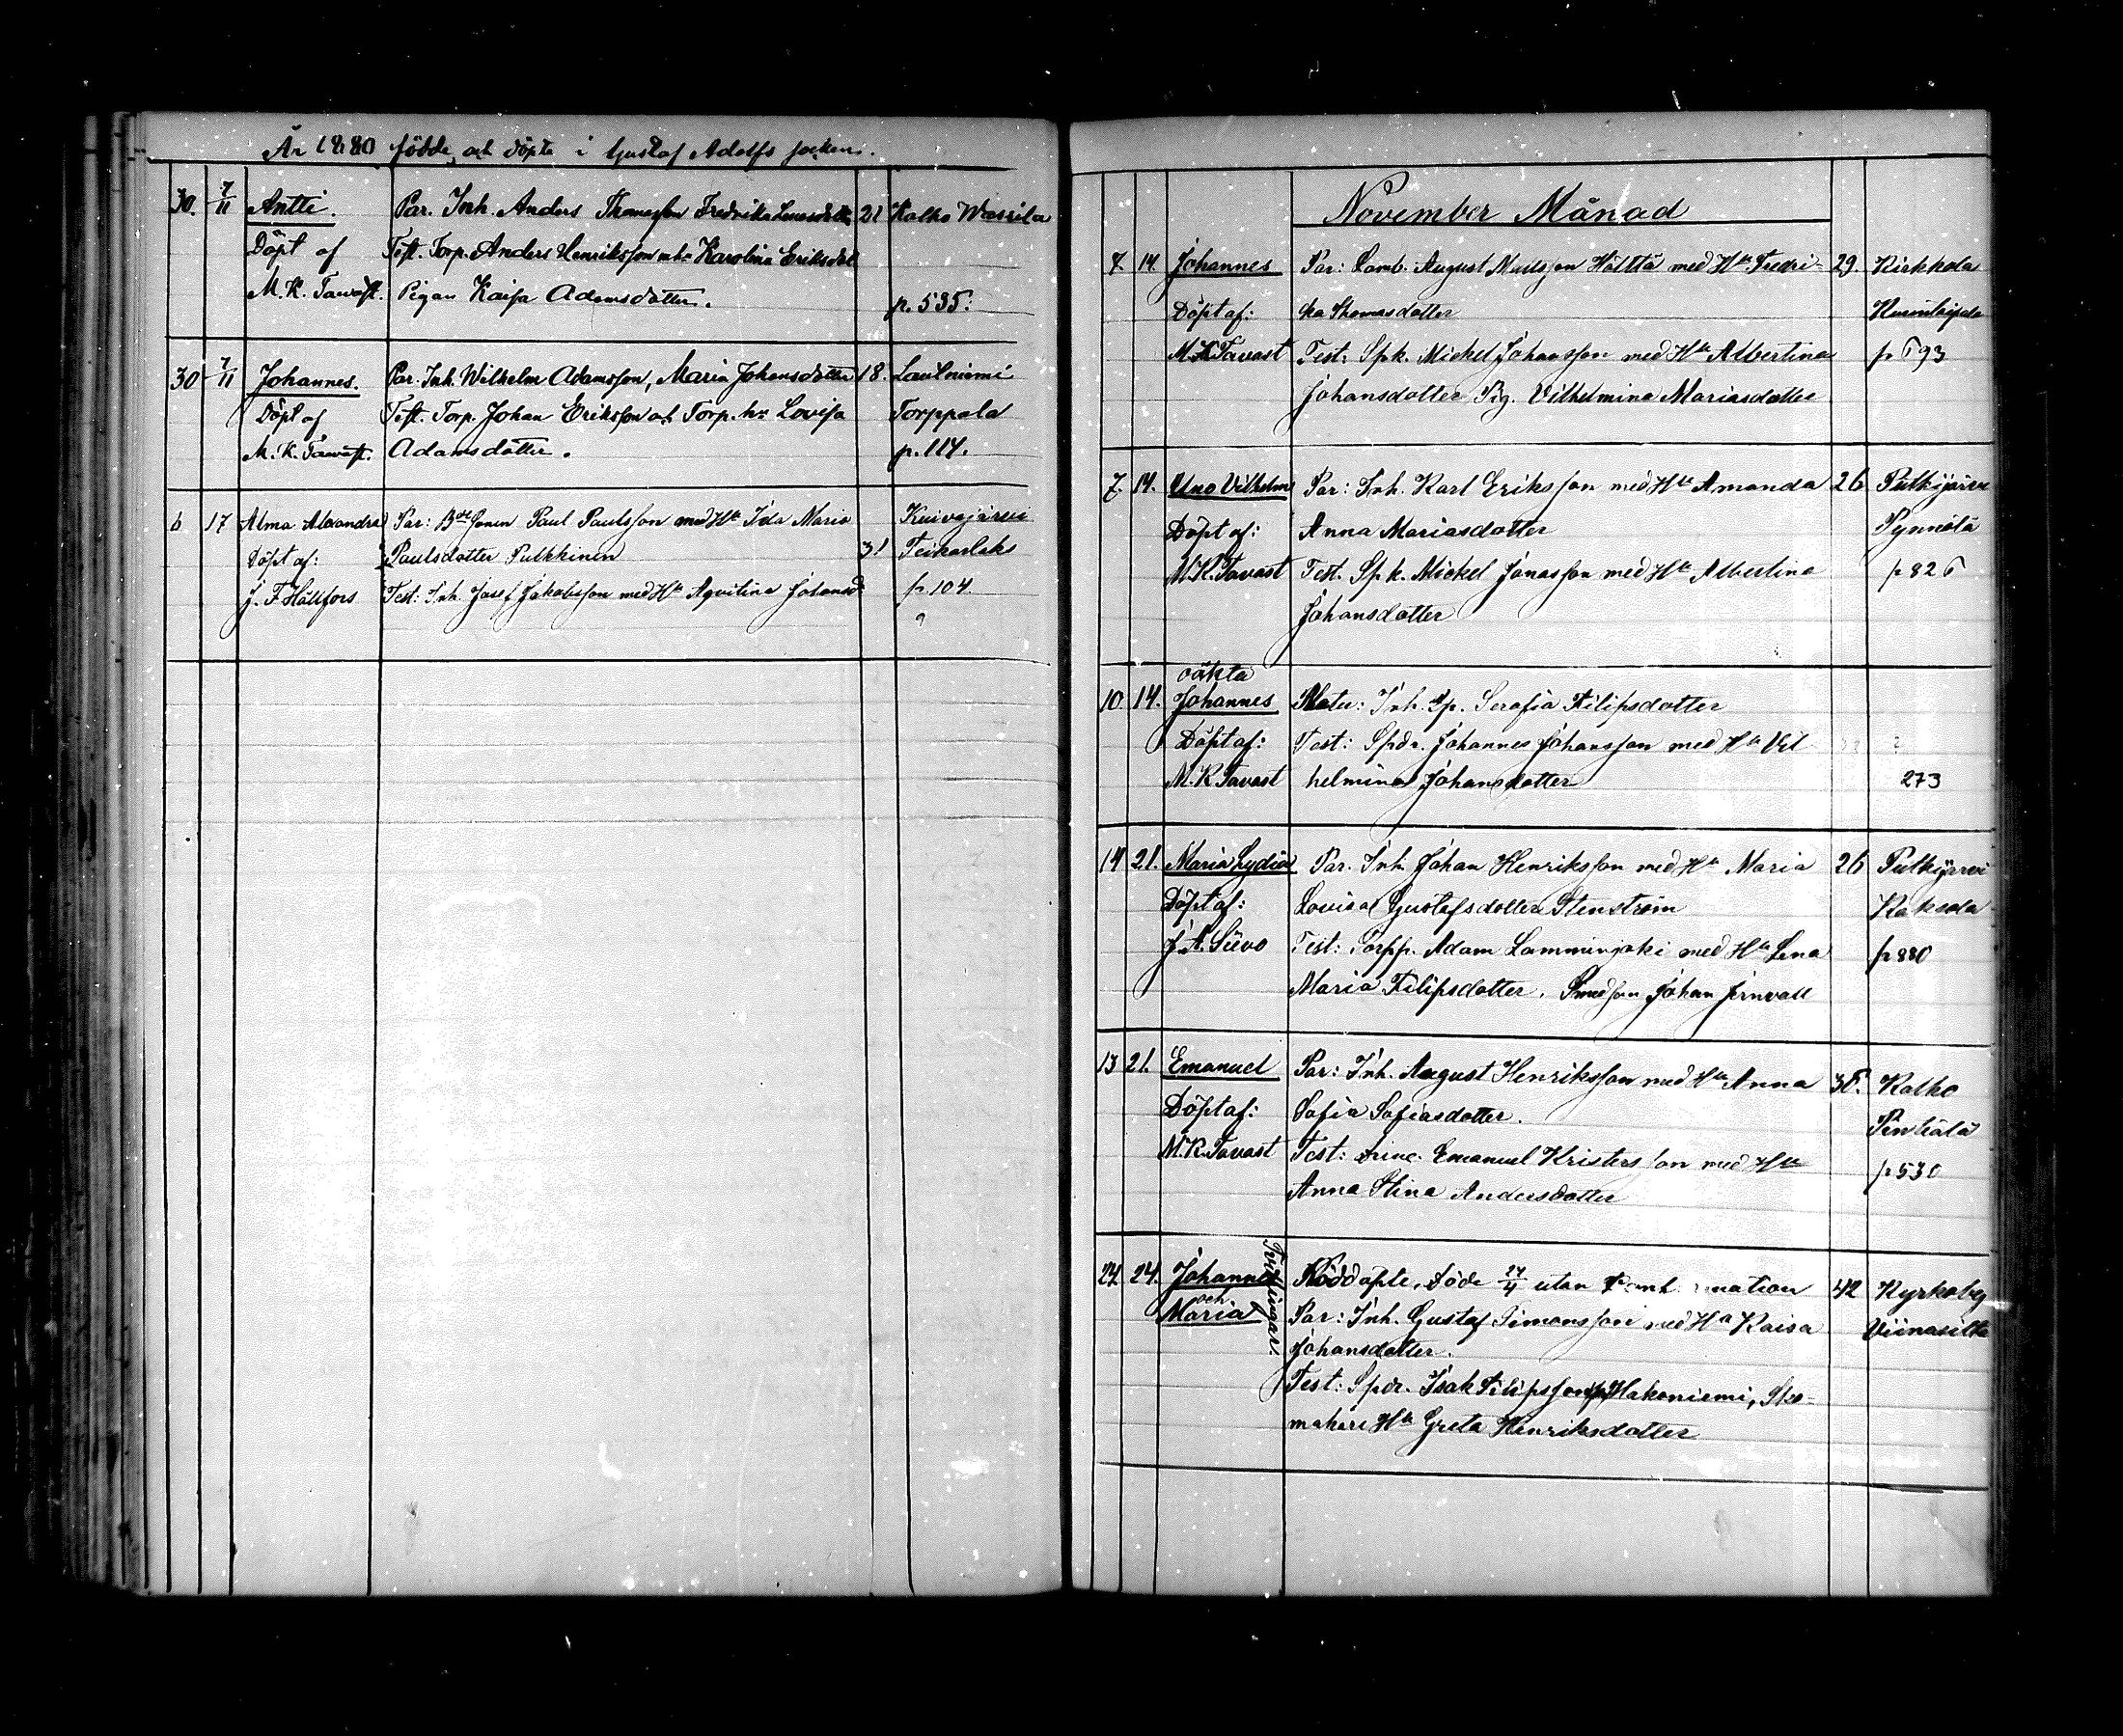 År 1880 födde och döpte i Gustaf Adolfs socken.
30. 7/11 Antti. Par. Inh. Anders Thomasson Fredrika 21 Kalho Wassila
Döpt af Test. Torp. Anders Henriksson Karolina Eriksdot
M. K. Tawast. Pigan Kaisa Adamsdotter. p. 535.
30 7/11 Johannes. Par. Inh. Wilhelm Adamsson, Maria Johansdotter 18. Lautniemi
Döpt af Test. Torp. Johan Eriksson och Torp. hu Lovisa Torppala
M. K. Tawast. Adamsdotter. p. 114.
6 17 Alma Alexandra Par: Bdesonen Paul Paulsson med Hu Ida Maria Kuivajärvi
Döpt af: Paulsdotter Pulkkinen 31 Teikarlaks
J. F. Hällfors Test: Inh. Josef Jakobsson med Hu Agvitina Johansd p. 104.
November Månad
7. 14. Johannes Par: Lamb. August Hölttä med Hu Fredri- 29. Kirkkola
Döpt af: ka Thomasdotter
M. K. Tavast Test: Spk. Mickel Johansson med Hu Albertina p 693
Johansdotter Pig. Vilhelmina Mariasdotter
7. 14. Uno Vilhelm Par: Inh. Karl Eriksson med Hu Amanda 26 Putkijärvi
Döpt af: Anna Mariasdotter Tynnölä
M. K. Tavast Test. Spk. Mickel Jonasson med Hu Albertina p 826
Johansdotter
oäkta
10. 14. Johannes Mater: Inh. Ip. Serafia Filipsdotter
Döpt af: Test: Spdr. Johannes Johansson med Hu Vil
M. K. Tavast helmina Johansdotter 273
14 21. Maria Lydia Par. Inh. Johan Henriksson med Hu Maria 26 Putkijärvi
Döpt af: Lovisa Gustafsdotter Stenström Kakola
J. A. Siivo Test: Torpp. Adam Lamminjoki med Hu Lena p 880
Maria Filipsdotter. Smedson Johan Jernvall
13 21. Emanuel Par: Inh. August Henriksson med Hu Anna 36. Kalho
Döpt af: Sofia Sofiasdotter.
M. K. Tavast Test: Emanuel Kristersson med Hu p 530
Anna Stina Andersdotter
24 24. Johannes Nöddöpte, döde utan 42 Kyrkoby
och
Maria Tvillingar. Par: Inh. Gustaf Simonsson med Hu Kaisa Viinasilta
Johansdotter.
Test: Spdr. Isak Filipsson Hakoniemi, Sko-
makare Hu Greta Henriksdotter